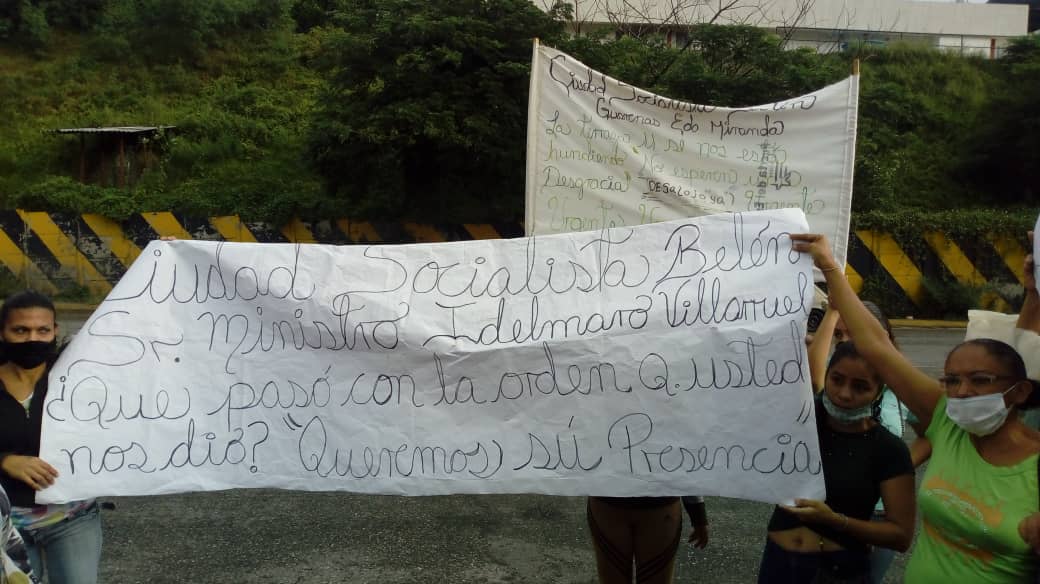 Ciudad Socialista Belén
Guarenas Edo Miranda
La terraza U se nos está
hundiendo No esperen una
Desgracia" DESALOJO YA?
Urgente
Ciudad Socialista Belén
Sr. Ministro Idelmaro Villarruel
¿Que pasó con la orden Q. usted
nos dió? "Queremos sú Presencia"